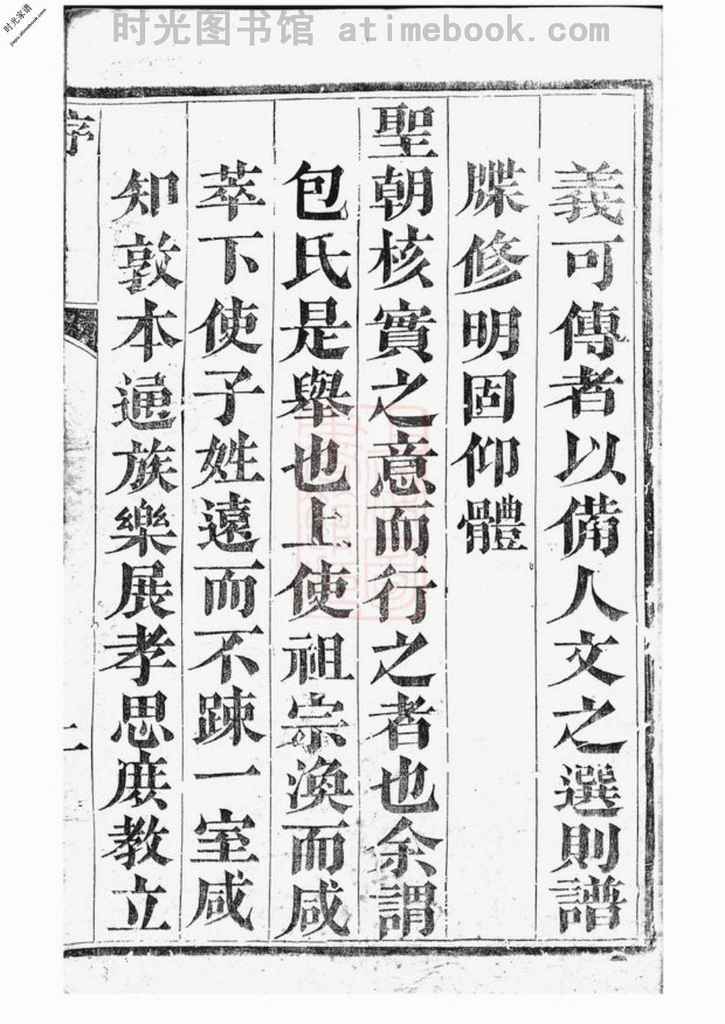 时光图书馆 atimebook.com
时光家谱
jiapu.atimebook.com
義可傳者以備人文之選則譜
牒修明固仰體
聖朝核實之意而行之者也余謂
包氏是舉也上使祖宗渙而咸
萃下使子姓遠而不踈一室咸
知敦本通族樂展孝思庻教立
序
二